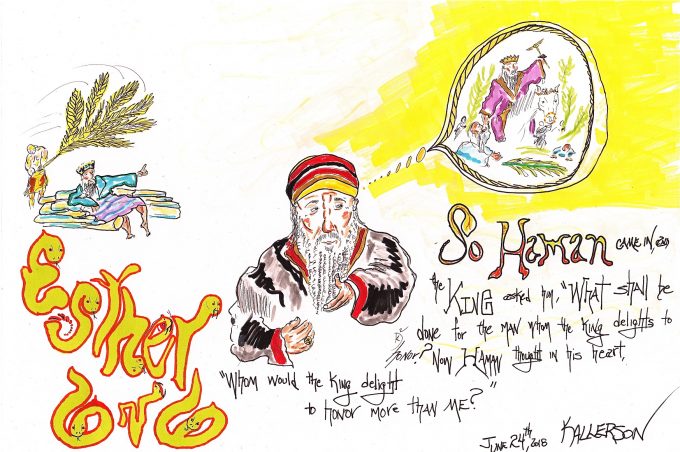 Esther
6 v 6
So Haman CAME IN, and
the KING asked him, "WHAT shall be
done for the man whom the king delights to
honor? NOW HAMAN thought in his heart,
"WHOM would the king delight
to HONOR MORE THAN ME?"
JUNE 24th, 2018 KALLERSON